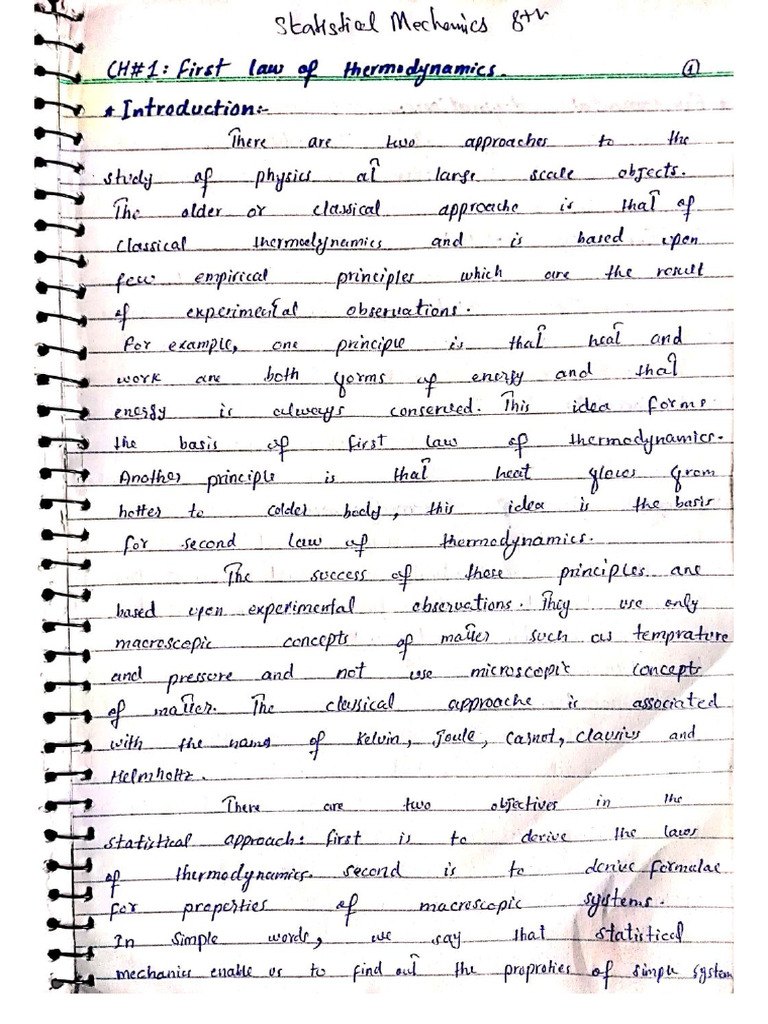 Statistical Mechanics 8th
CH#1: First law of thermodynamics. 1
* Introduction:-
There are two approaches to the
study of physics of large scale objects.
The older or classical approache is that of
classical thermodynamics and is based upon
few empirical principles which are the result
of experimental observations.
For example, one principle is that heat and
work are both forms of energy and that
energy is always conserved. This idea forms
the basis of first law of thermodynamics.
Another principle is that heat flows from
hotter to colder body, this idea is the basis
for second law of thermodynamics.
The success of these principles are
based upon experimental observations. They use only
macroscopic concepts of matter such as temprature
and pressure and not use microscopic concepts
of matter. The classical approache is associated
with the name of Kelvin, Joule, Carnot, Clausius and
Helmholtz.
There are two objectives in the
statistical approach: first is to derive the laws
of thermodynamics. second is to derive formulae
for properties of macroscopic systems.
In simple words, we say that statistical
mechanics enable us to find out the proproties of simple system